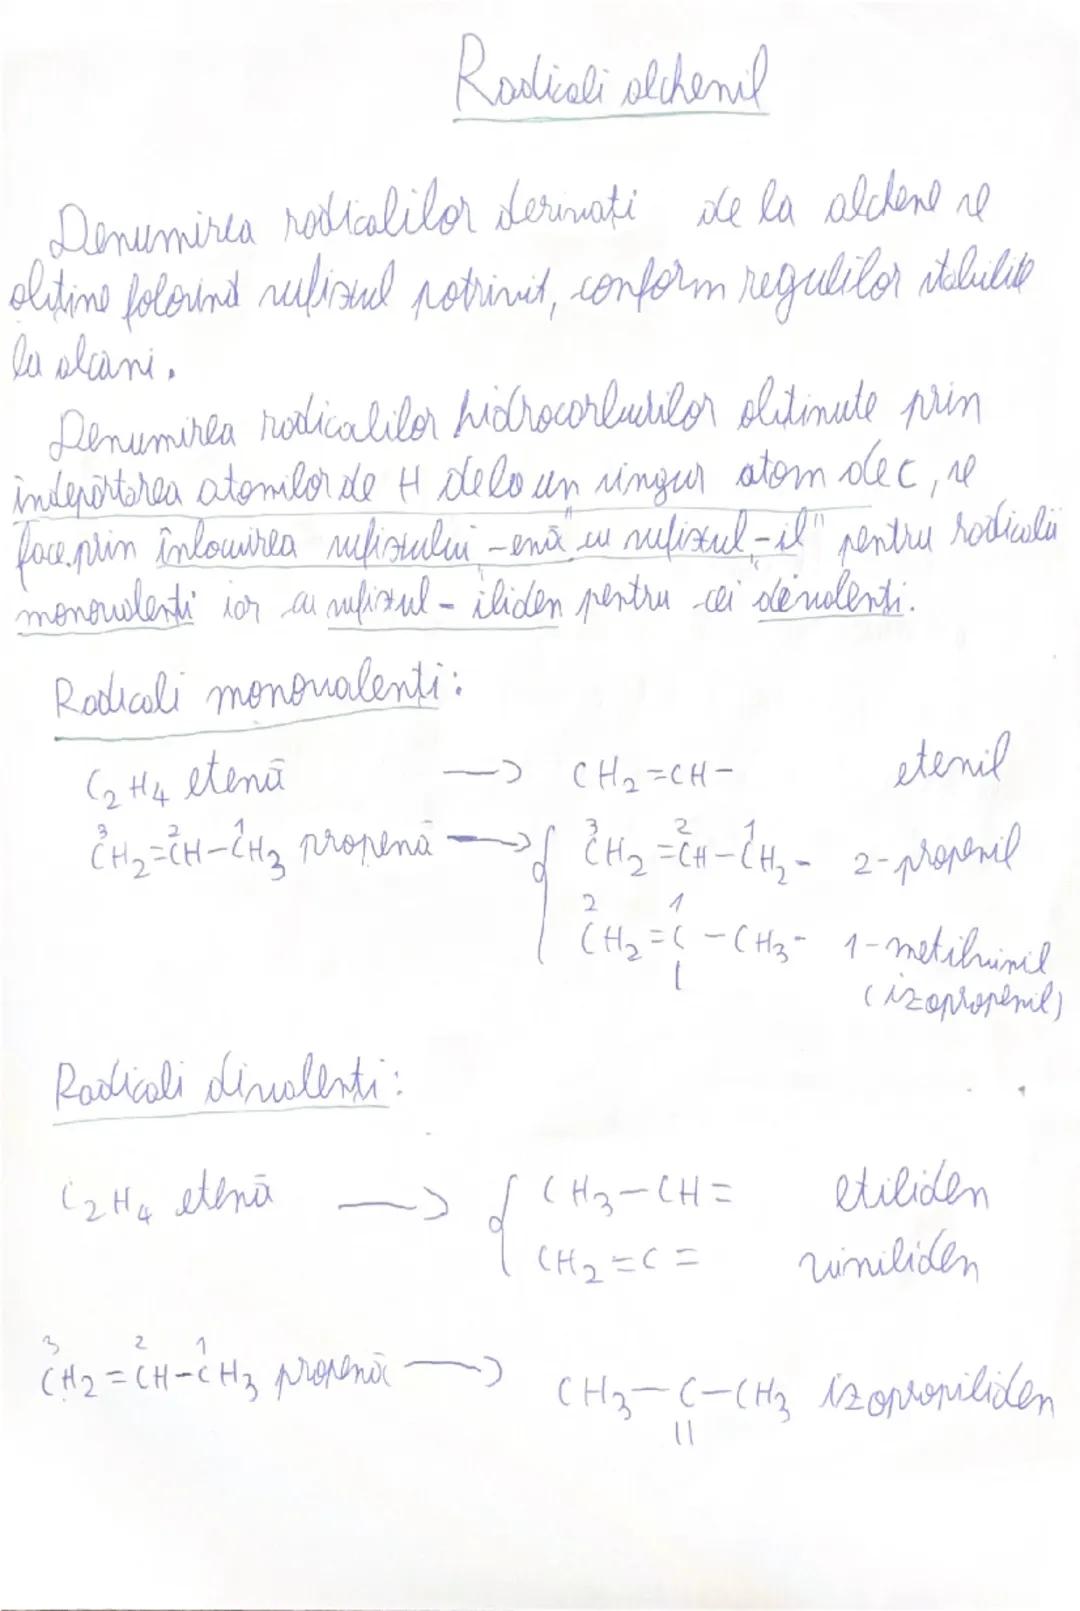 Radicali alchenil
Denumirea radicalilor derivați de la alchene se
obține folosind sufixul potrivit, conform regulilor stabilite
la alcani.
Denumirea radicalilor hidrocarburilor obținute prin
îndepărtarea atomilor de H de la un singur atom de C, se
face prin înlocuirea sufixului -enă" cu sufixul „-il" pentru radicalii
monovalenți iar cu sufixul - iliden pentru cei divalenți.
Radicali monovalenți:
C₂H₄ etenă → CH₂=CH- etenil
3 2 1 3 2 1
CH₂=CH-CH₃ propenă → { CH₂=CH-CH₂- 2-propenil
2 1
CH₂=C-CH₃- 1-metilvinil
| (izopropenil)
Radicali divalenți:
C₂H₄ etenă → { CH₃-CH= etiliden
CH₂=C= viniliden
3 2 1
CH₂=CH-CH₃ propenă → CH₃-C-CH₃ izopropiliden
||